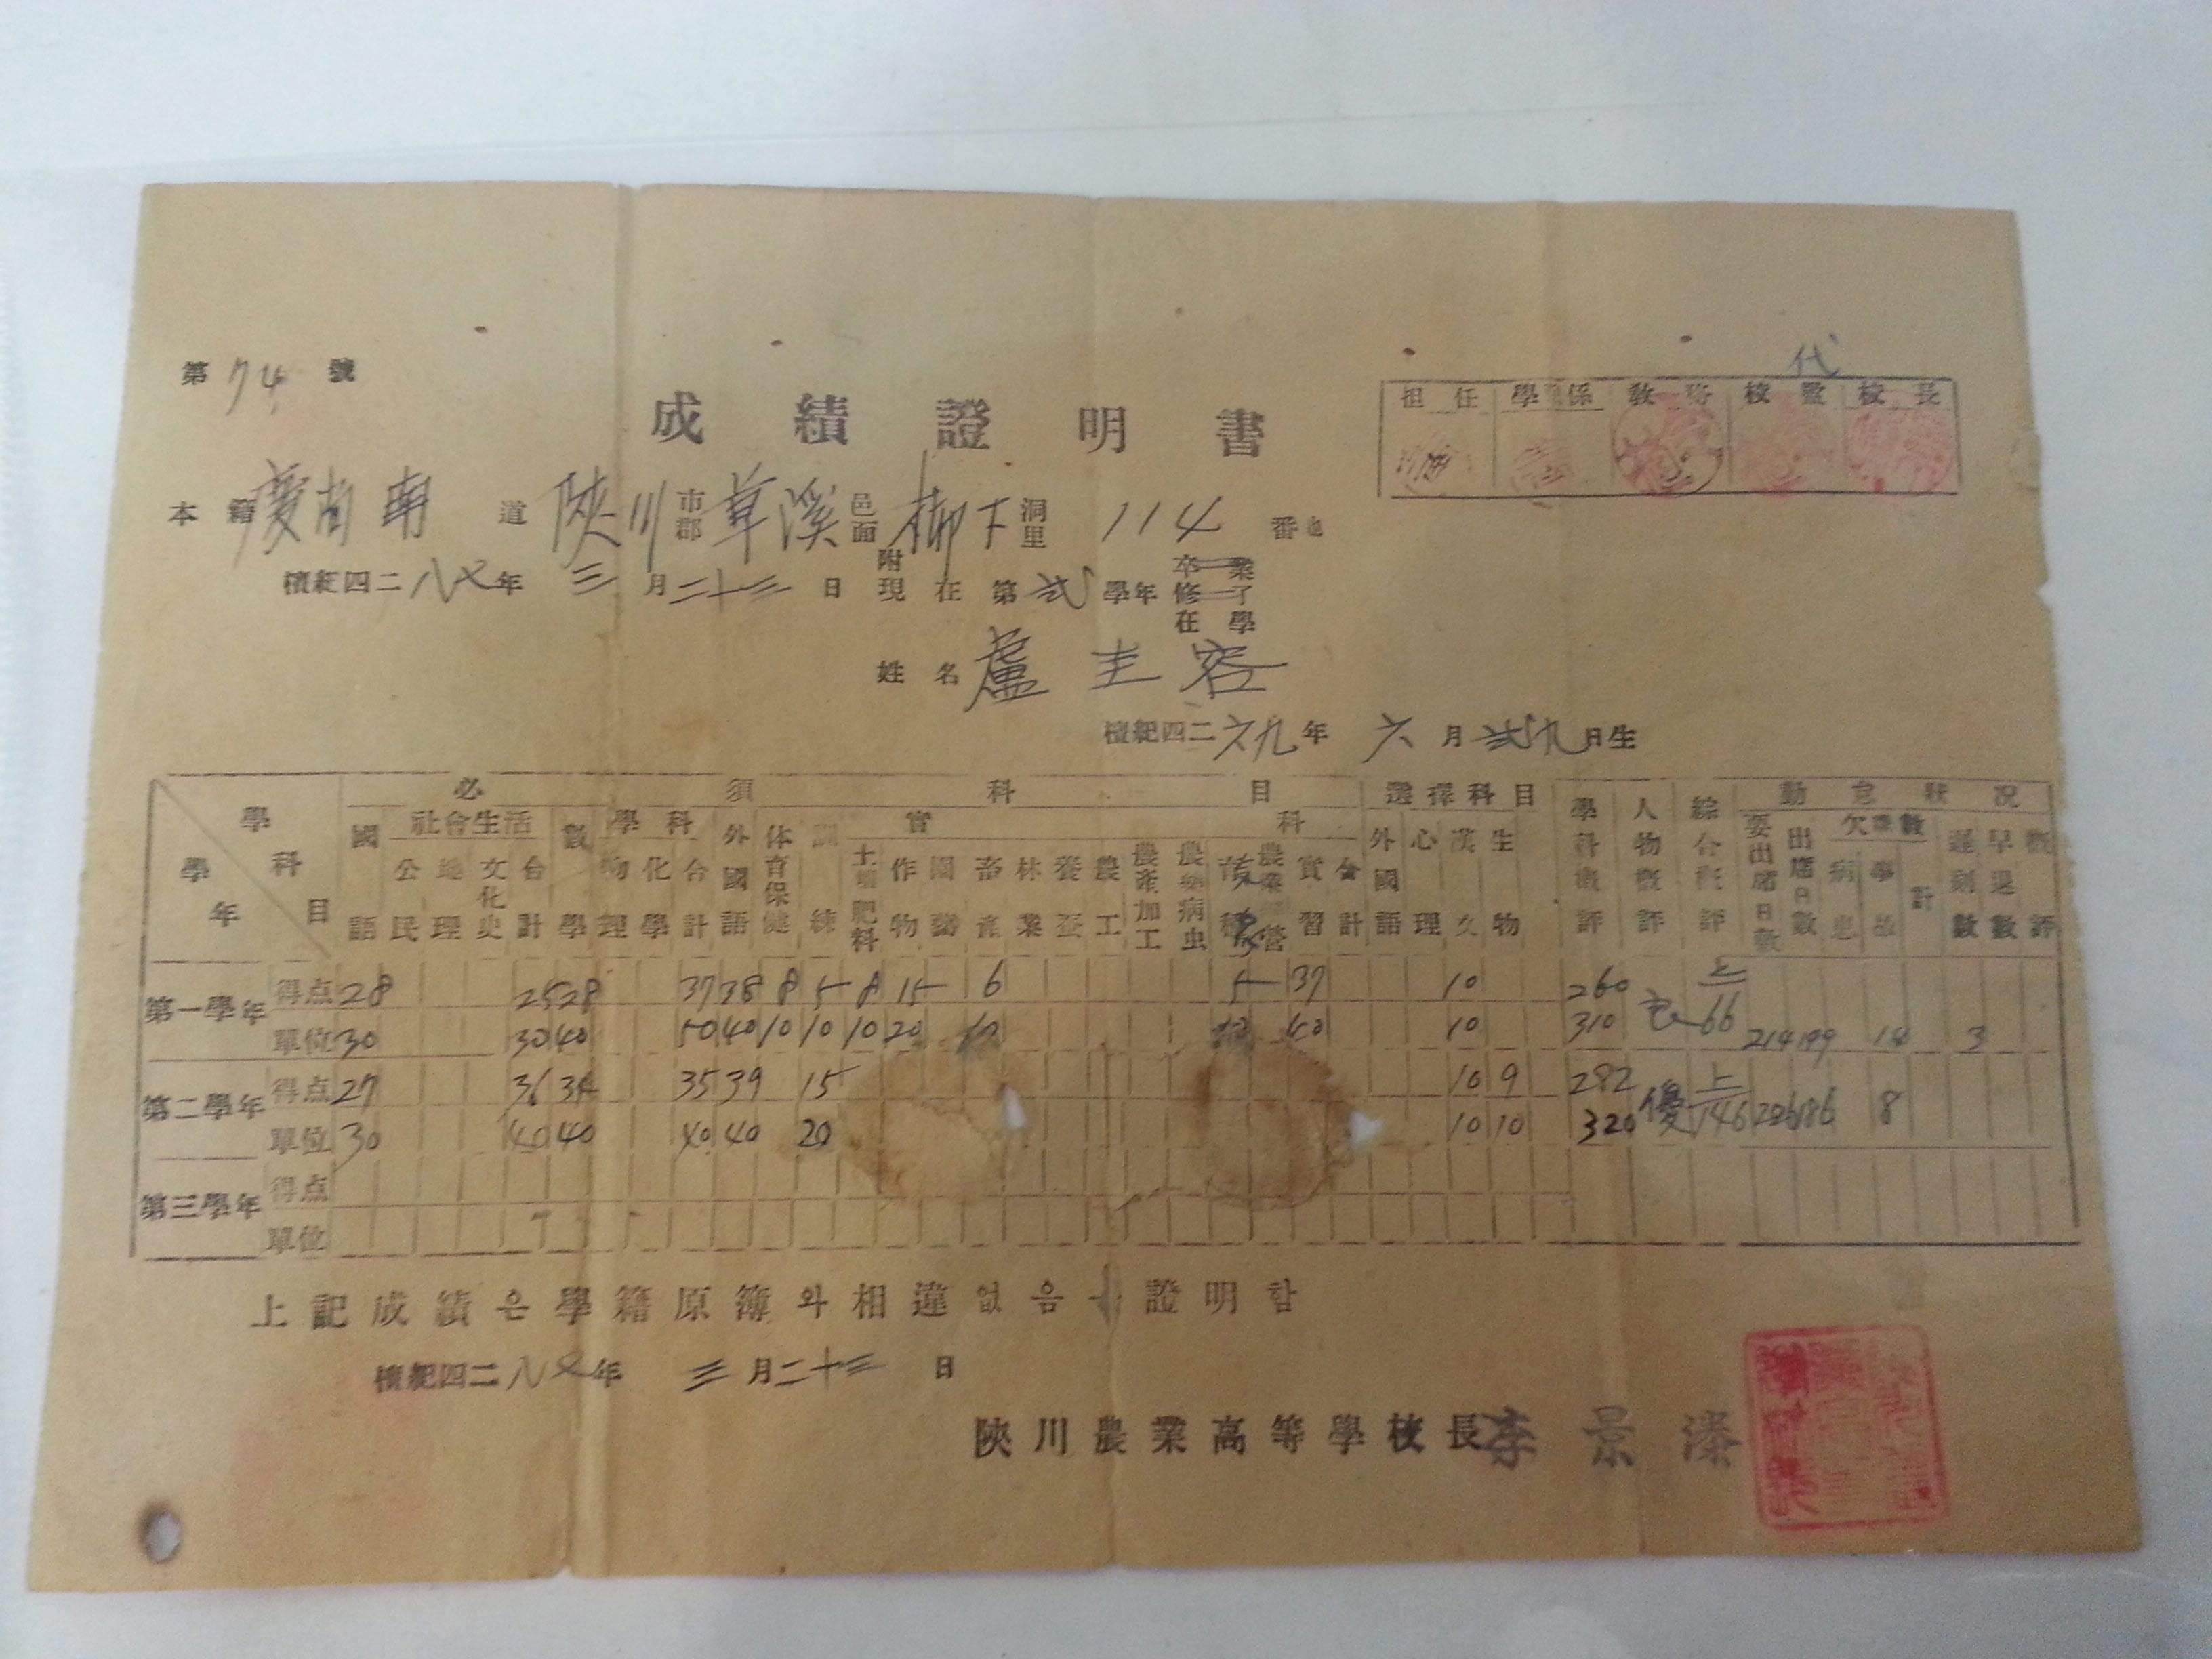 代
第 74 號
担任 學 係 教務 校監 校長
成績證明書
本籍 慶尚南 道 陜川 市郡 草溪 邑面 柳下 洞里 114 番地
檀紀四二八七年 三月二十三日 附現在 第弐學年 卒業 修了 在學
姓名 盧 圭 容
檀紀四二六九年 六月弐九日生
必須科目 選擇科目 學科概評 人物概評 綜合概評 勤怠狀況
學年 學科目 國語 社會生活 數學 學科 外國語 体育保健 訓練 實科 外國語 心理 漢文 生物 要出席日數 出席日數 欠席數 遲刻數 早退數 概評
公民 地理 文化史 合計 物理 化學 合計 土壤肥料 作物 園藝 畜產 林業 養蚕 農工 農產加工 農業病虫 實習 合計 病患 事故 計
第一學年 得点 28 25 28 37 38 8 5 8 15 6 5 37 10 260 上
單位 30 30 40 50 40 10 10 10 20 10 10 40 10 310 66 214 199 14 3
第二學年 得点 27 36 34 35 39 15 10 9 282 優 上
單位 30 40 40 40 40 20 10 10 320 146 206 186 8
第三學年 得点
單位
上記成績은學籍原簿와相違없음 證明함
檀紀四二八七年 三月二十三日
陜川農業高等學校長 李景